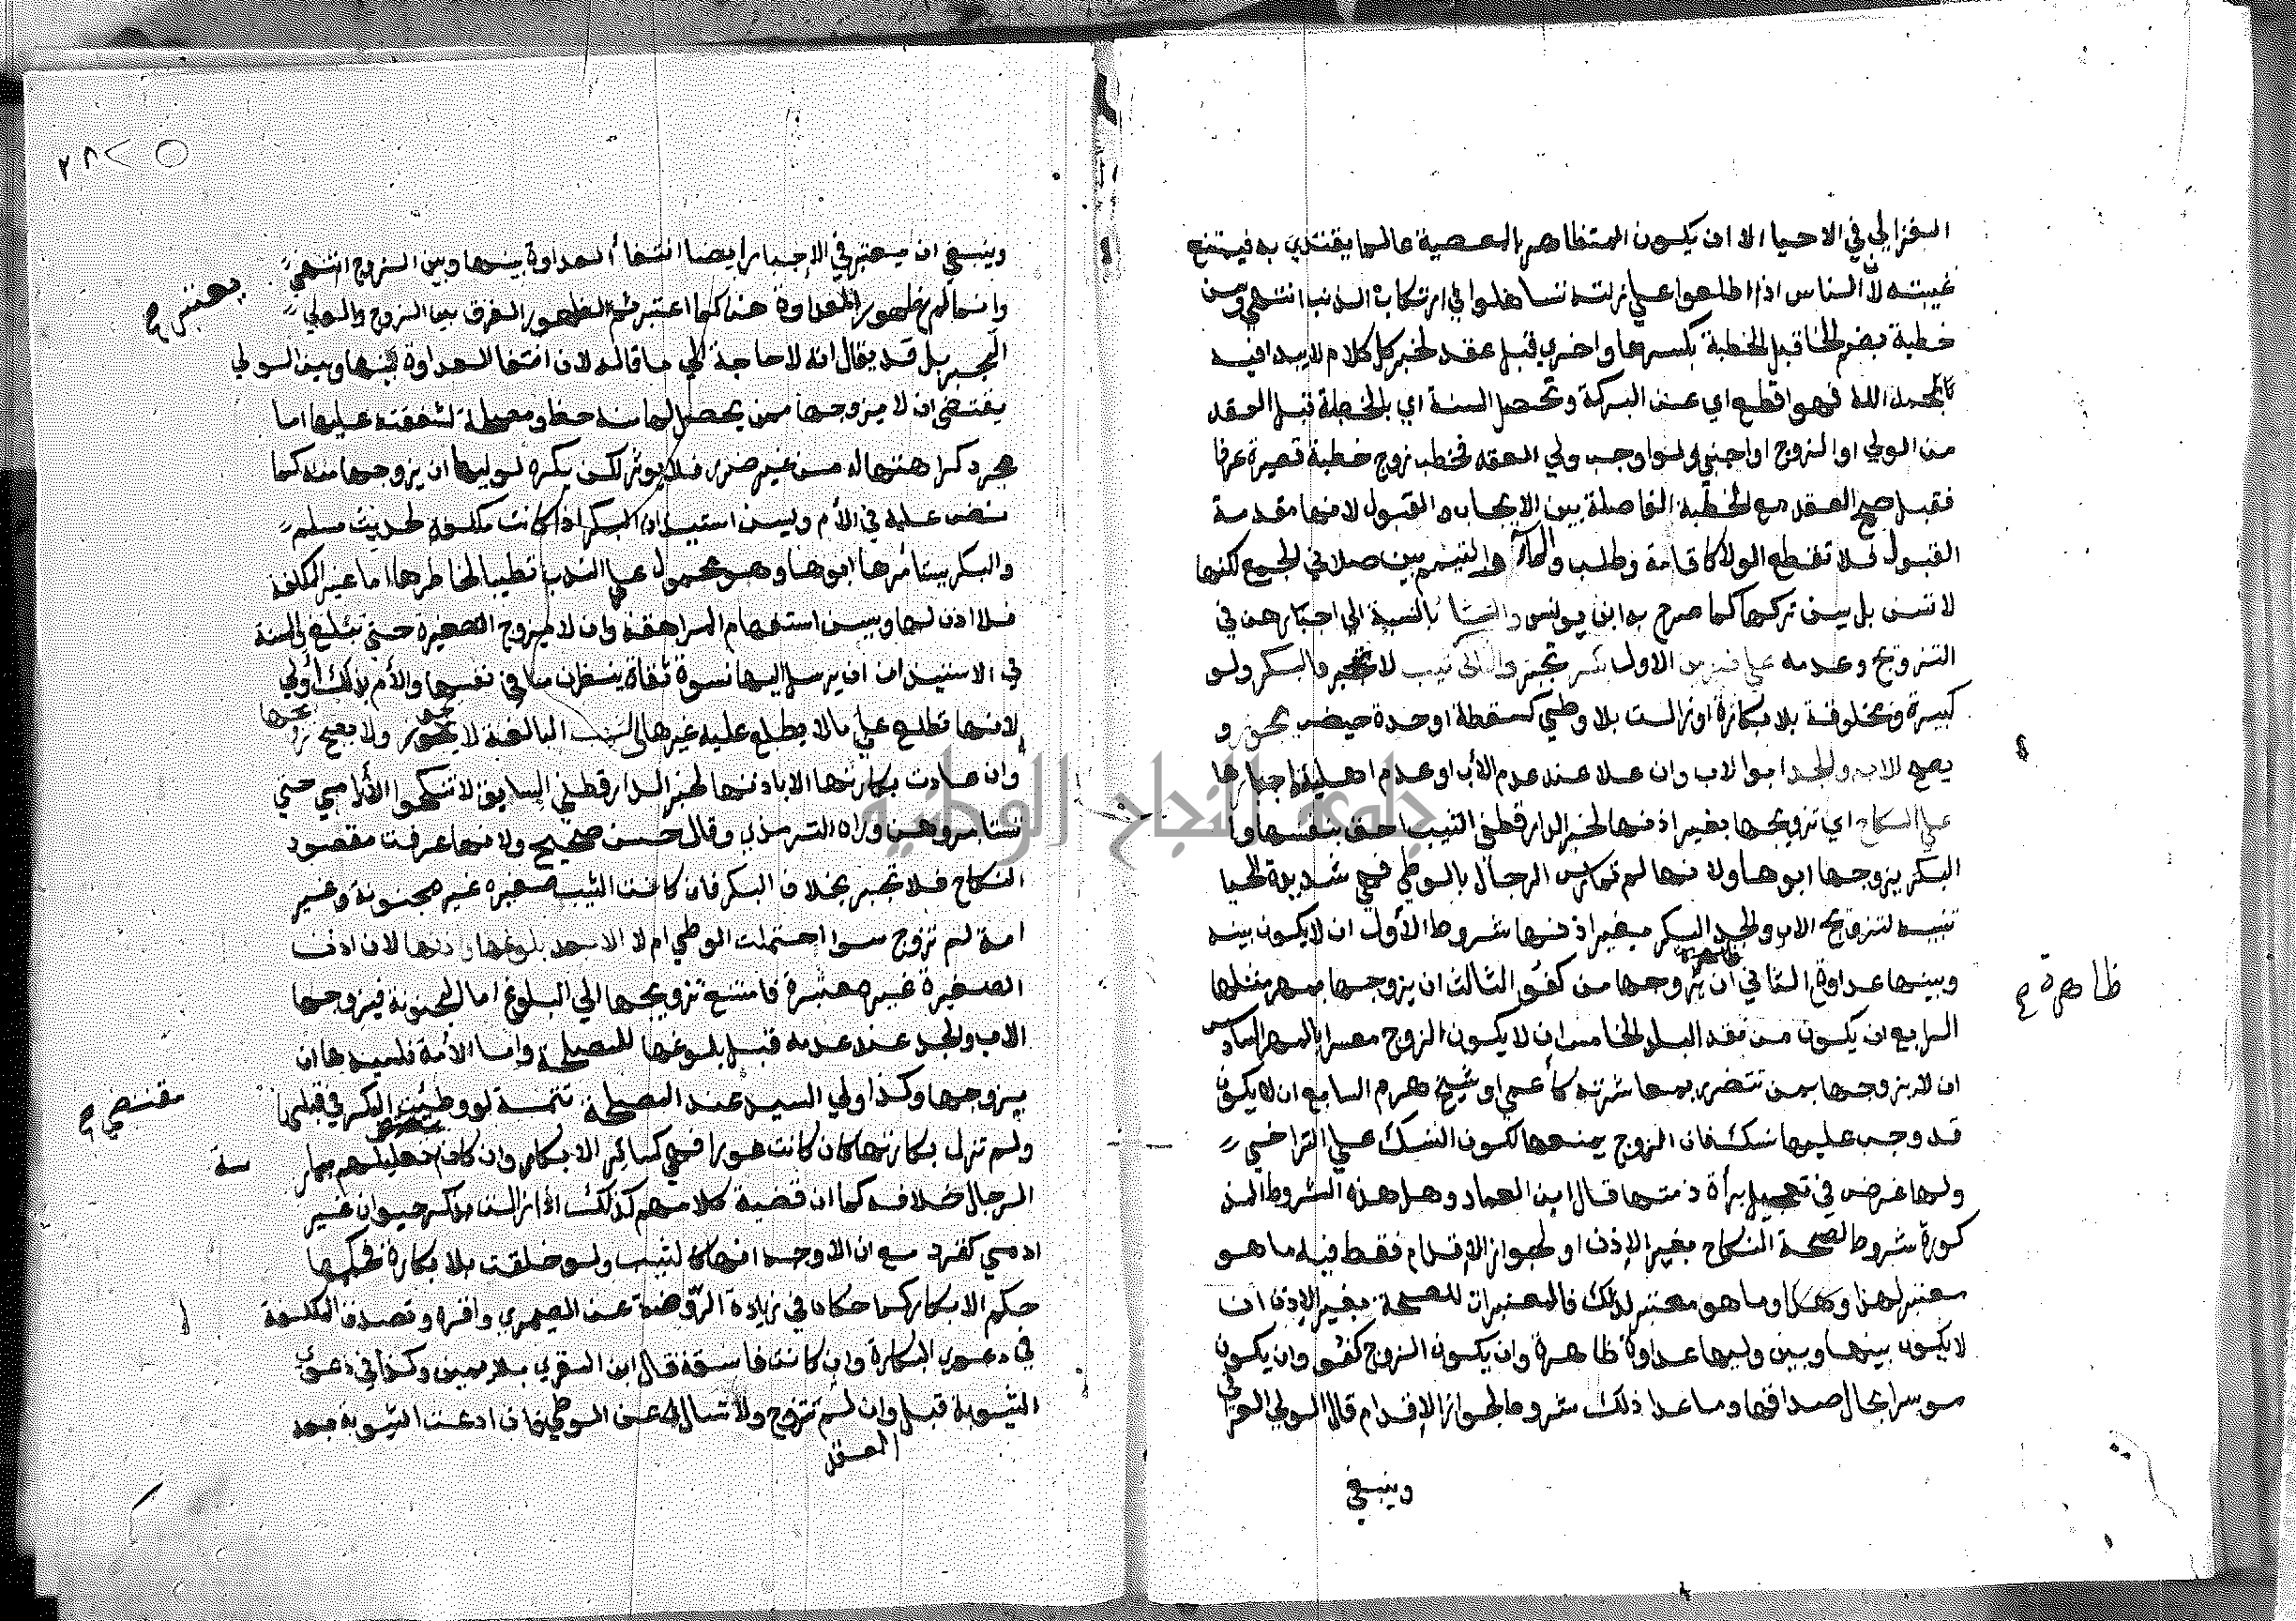 الغزالي في الاحيا الا ان يكون المتظاهر بالمعصية عالما يقتدي به فيمتنع
غيبته لان الناس اذا اطلعوا على زلته تساهلوا في ارتكاب الذنب انتهى وسن
خطبة بضم الخا قبل الخطبة بكسرها واخري قبل عقد لخبر كل كلام لا يبدا فيه
بالحمد الله فهو اقطع اي عن البركة وتحصل السنة اي بالخطبة قبل العقد
من الولي او الزوج او اجنبي ولو اوجب ولي العقد فخطب زوج خطبة قصيرة عرفا
فقبل صح العقد مع الخطبة الفاصلة بين الايجاب والقبول لانها مقدمة
القبول فلا تقطع الولا كاقامة وطلب والتيمم بين صلاتي الجمع لكنها
لا تسن بل يسن تركها كما صرح به ابن يونس والنسا بالنسبة الي اجبارهن في
التزويج وعدمه علي ضربين الاول بكر تجبر والثاني ثيب لا تجبر والبكر ولو
كبيرة ومخلوقة بلا بكارة او زالت بلا وطي كسقطة او حدة حيض يجوز و
يصح للاب والجد ابو الاب وان علا عند عدم الأب او عدم اهليته اجبارها
علي النكاح اي تزويجها بغير اذنها لخبر الدارقطني الثيب احق بنفسها وا
البكر يزوجها ابوها ولانها لم تمارس الرجال بالوطي فهي شديدة الحيا
تنبيه لتزويج الاب والجد البكر بغير اذنها شروط الأول ان لا يكون بينه
وبينها عداوة ظاهرة الثاني ان يزوجها من كفؤ الثالث ان يزوجها بمهر مثلها
الرابع ان يكون من نقد البلد الخامس ان لا يكون الزوج معسرا بالمهر السادس
ان لا يزوجها بمن تتضرر بمعاشرته كأعمي وشيخ هرم السابع ان لا يكون
قد وجب عليها نسك فان الزوج يمنعها لكون النسك علي التراخي
ولها غرض في تعجيل برأة ذمتها قال ابن العماد وهل هذه الشروط المذ
كورة شروط لصحة النكاح بغير الإذن او لجواز الإقدام فقط فيه ما هو
معتبر لهذا وهكذا وما هو معتبر لذلك فالمعتبرات للصحة بغير الإذن ان
لا يكون بينها وبين وليها عداوة ظاهرة وان يكون الزوج كفؤ وان يكون
موسرا بحال صداقها وما عدا ذلك شروط لجواز الإقدام قال الولي العراقي
ظاهرة ح
وينبغي
وينبغي ان يعتبر في الإجبار ايضا انتفأ العداوة بينها وبين الزوج انتهي
وانما لم ظهور العداوة هنا كما اعتبر ثم لظهور الفرق بين الزوج والولي
يعتبر ح
المجبر بل قد يقال انه لا حاجة الي ما قاله لان انتفا العداوة بينها وبين الولي
يقتضي ان لا يزوجها ممن يحصل لها منه حظ ومصلحة لشفقته عليها اما
مجرد كراهتها له من غير ضرر فلا يؤثر لكن يكره لوليها ان يزوجها منه كما
نص عليه في الأم ويسن استيذان البكر اذا كانت مكلفة لحديث مسلم
والبكر يستأمرها ابوها وهو محمول علي الندب تطيبا لخاطرها اما غير المكلفة
فلا اذن لها ويسن استفهام المراهقة وان لا يزوج الصغيرة حتي تبلغ والسنة
في الاستيذان ان يرسل اليها نسوة ثقاة ينظرن ما في نفسها والأم بذلك أولي
لانها تطلع علي ما لا يطلع عليه غيرها الثيب البالغة لا يجوز ولا يصح تزويجها
وان عادت بكارتها الا باذنها لخبر الدارقطني السابق لا تنكحوا الأيامي حتي
تستأمروهن ورواه الترمذي وقال حسن صحيح ولانها عرفت مقصود
النكاح فلا تجبر بخلاف البكر فان كانت الثيب صغيره غير مجنونة وغير
امة لم تزوج سوا احتملت الوطي ام لا الا بعد بلوغها واذنها لان اذن
الصغيرة غير معتبرة فامتنع تزويجها الي البلوغ اما المجنونة فيزوجها
الاب والجد عند عدمه قبل بلوغها للمصلحة واما الأمة فلسيدها ان
يزوجها وكذا ولي السيد عند المصلحة تتمة لو وطئت البكر في قبلها
ولم تزل بكارتها كان كانت غورا فهي كسائر الابكار وان كان تعليلهم بممارسة
مقتضي ح
الرجال خلافه كما ان قضية كلامهم كذلك اذا زالت بذكر حيوان غير
ادمي كقرد مع ان الأوجه انها كالثيب ولو خلقت بلا بكارة فحكمها
حكم الابكار كما حكاه في زيادة الروضة عن الصيمري واقره وتصدق المكلفة
في دعوي البكارة وان كانت فاسقة قال ابن المقري بلا يمين وكذا في دعوي
الثيوبة قبل وان لم تتزوج ولا تسال عن الوطي فان ادعت الثيوبة بعد
العقد